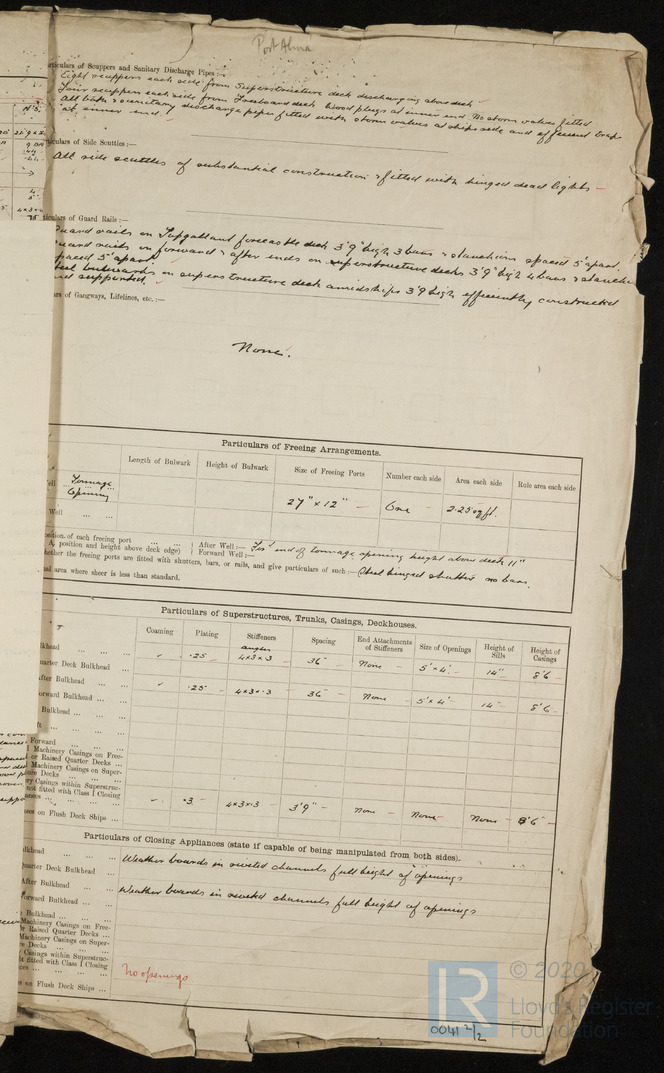 Port Alma
Particulars of Scuppers and Sanitary Discharge Pipes:—
Eight scuppers each side from Superstructure deck discharging above deck
Four scuppers each side from Freeboard deck Wood plugs at inner end. No storm valves fitted
All bath & sanitary discharge pipes fitted with storm valves at ships side and efficient traps
at inner end.
iculars of Side Scuttles:—
All side scuttles of substantial construction & fitted with hinged dead lights —
ticulars of Guard Rails:—
Guard rails on Topgallant forecastle deck 3'9" high 3 bars & stanchions spaced 5' apart
Guard rails on forward & after ends on superstructure decks 3'9" high 4 bars & stanchions
spaced 5' apart
Steel bulwarks on superstructure deck amidships 3'9 high efficiently constructed
and supported.
lars of Gangways, Lifelines, etc.:—
None.
Particulars of Freeing Arrangements.
Length of Bulwark Height of Bulwark Size of Freeing Ports Number each side Area each side Rule area each side
ell Tonnage
Opening 27" x 12" — One 2.25 sq ft.
Well
osition of each freeing port
A, position and height above deck edge) After Well:— Forward Well:— For'd end of tonnage opening height above deck 11"
hether the freeing ports are fitted with shutters, bars, or rails, and give particulars of such:— Steel hinged shutter no bars.
nal area where sheer is less than standard.
Particulars of Superstructures, Trunks, Casings, Deckhouses.
Coaming Plating Stiffeners Spacing End Attachments of Stiffeners Size of Openings Height of Sills Height of Casings
lkhead ✓ .25 angles 4x3x.3 36" None 5' x 4' 14" 8'6
uarter Deck Bulkhead
After Bulkhead ✓ .25 4x3x.3 36" None 5' x 4' 14" 8'6
orward Bulkhead
Bulkhead
ft
Forward
l Machinery Casings on Free-
or Raised Quarter Decks
Machinery Casings on Super-
ure Decks
ry Casings within Superstruc-
not fitted with Class I Closing
ances ✓ .3 4x3x.3 3'9" None None None 8'6
ses on Flush Deck Ships
Particulars of Closing Appliances (state if capable of being manipulated from both sides).
lkhead Weather boards in riveted channels full height of openings
uarter Deck Bulkhead
After Bulkhead Weather boards in riveted channels full height of openings
orward Bulkhead
Bulkhead
Machinery Casings on Free-
r Raised Quarter Decks
Machinery Casings on Super-
re Decks
Casings within Superstruc-
t fitted with Class I Closing
nces No openings
s on Flush Deck Ships
© 2020
Lloyd's Register
Foundation
0041 2/2